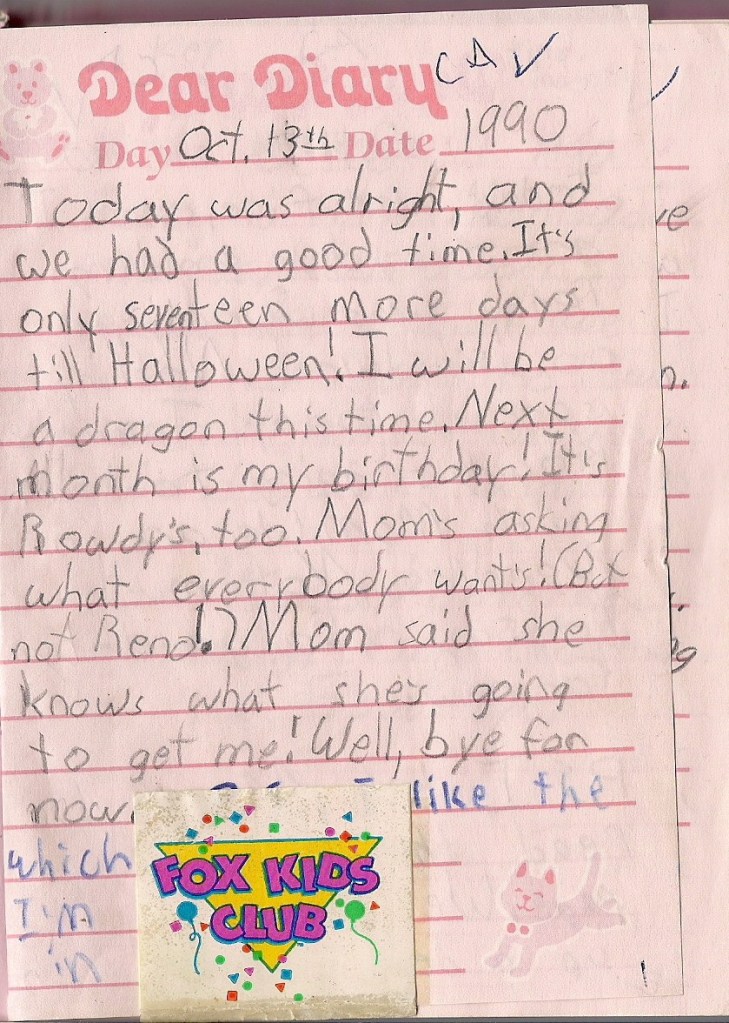 Dear Diary CAV
Day Oct. 13th Date 1990
Today was alright, and
we had a good time. It's
only seventeen more days
till Halloween! I will be
a dragon this time. Next
month is my birthday! It's
Rowdy's, too. Mom's asking
what everybody wants! (But
not Reno!) Mom said she
knows what she's going
to get me! Well, bye for
now. I like the
which
I'm
in
FOX KIDS
CLUB